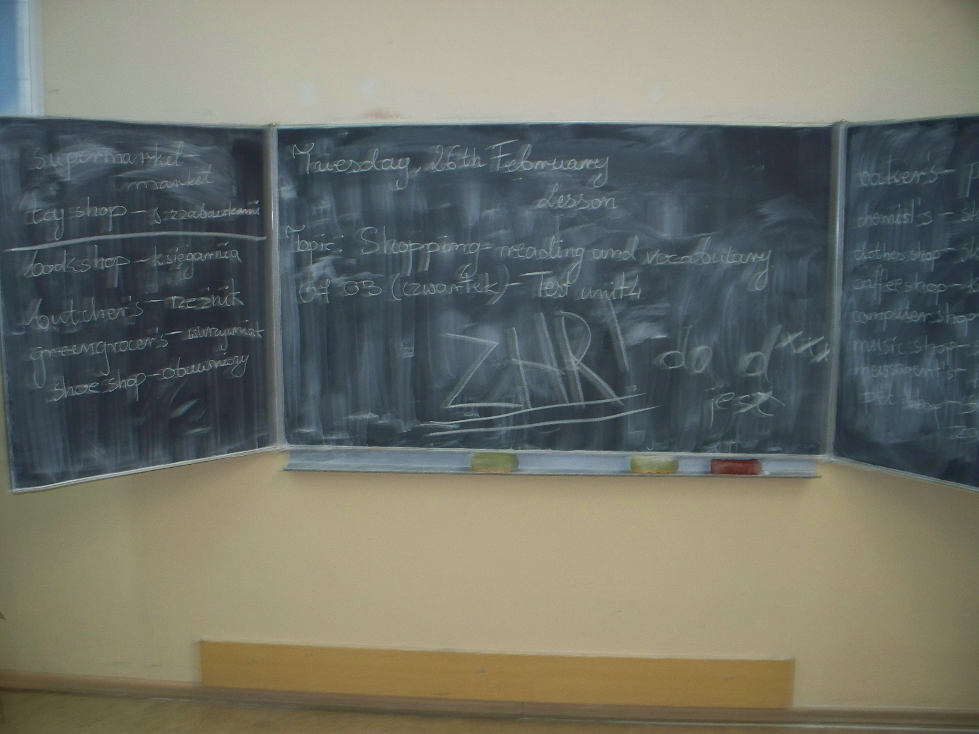 supermarket-
market
toy shop - s. z zabawkami
bookshop - księgarnia
butcher's - rzeźnik
greengrocer's - warzywniak
shoe shop - obuwniczy
Tuesday, 26th February
Lesson
Topic: Shopping - reading and vocabulary
07.03 (czwartek) - Test unit 4
ŻAR! do d xxx
jest
baker's -
chemist's - s
clothes shop -
coffee shop -
computer shop
music shop -
newsagent's -
pet shop -